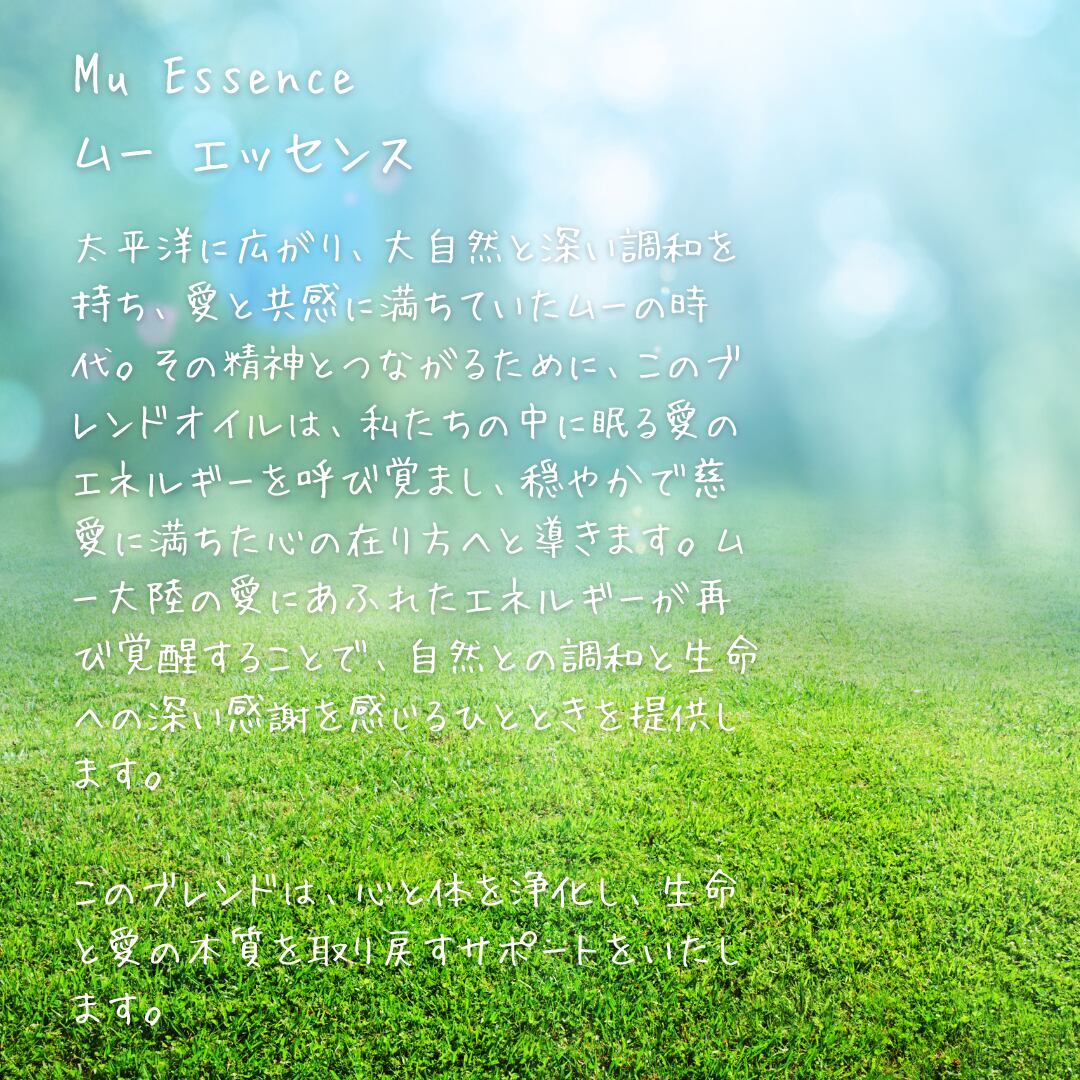 Mu Essence
ムー エッセンス
太平洋に広がり、大自然と深い調和を
持ち、愛と共感に満ちていたムーの時
代。その精神とつながるために、このブ
レンドオイルは、私たちの中に眠る愛の
エネルギーを呼び覚まし、穏やかで慈
愛に満ちた心の在り方へと導きます。ム
ー大陸の愛にあふれたエネルギーが再
び覚醒することで、自然との調和と生命
への深い感謝を感じるひとときを提供し
ます。
このブレンドは、心と体を浄化し、生命
と愛の本質を取り戻すサポートをいたし
ます。